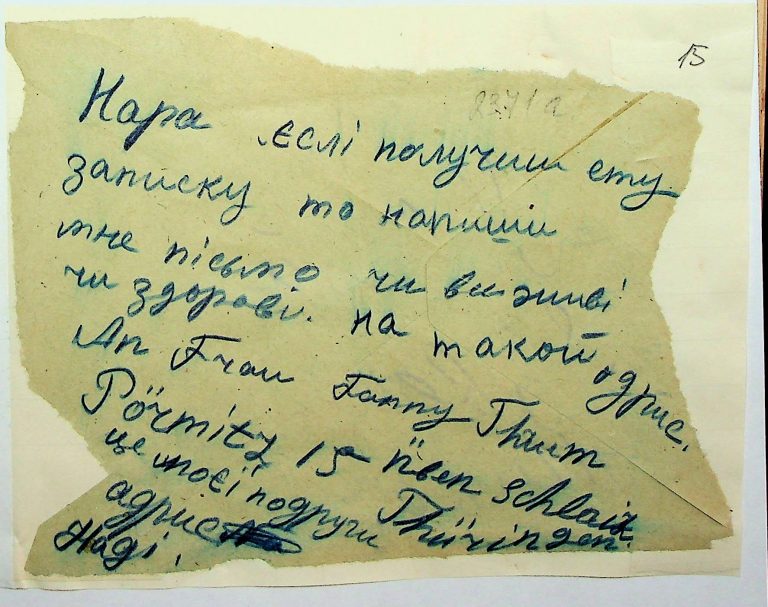 15
8371а
Нара єслі получиш ету
записку то напиши
мне пісьмо чи ви живі
чи здорові. на такой одрис.
An Frau Fanny Thum
Pörmitz 15 üben Schlaiz
це моєї подруги Thüringen.
адрис
Наді.